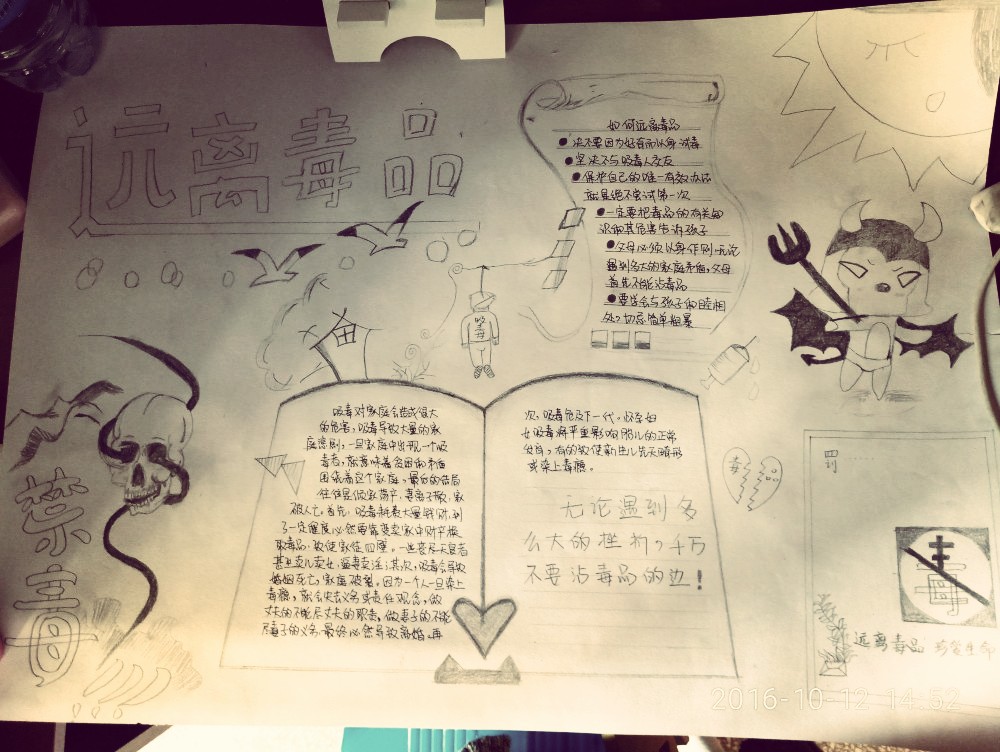 远离毒品
如何远离毒品
●决不要因为好奇而以身试毒
●坚决不与吸毒人交友
●保护自己的唯一有效办法
就是绝不尝试第一次
●一定要把毒品的有关知
识和其危害告诉孩子
●父母必须以身作则,无论
遇到多大的家庭矛盾,父母
首先不能沾毒品
●要学会与孩子和睦相
处,切忌简单粗暴
吸毒
禁毒
吸毒对家庭会造成很大
的危害,吸毒导致大量的家
庭悲剧,一旦家庭中出现一个吸
毒者,就意味着贫困和矛盾
围绕着这个家庭。最后的结局
往往是倾家荡产,妻离子散,家
破人亡。首先,吸毒耗费大量钱财,到
了一定程度必然要靠变卖家中财产换
取毒品,致使家徒四壁。一些丧尽天良者
甚至卖儿卖女,逼妻卖淫;其次,吸毒会导致
婚姻死亡,家庭破裂。因为一个人一旦染上
毒瘾,就会失去义务或责任观念,做
丈夫的不能尽丈夫的职责,做妻子的不能
尽妻子的义务,最终必然导致离婚。再
次,吸毒危及下一代。怀孕妇
女吸毒将严重影响胎儿的正常
发育,有的致使新生儿先天畸形
或染上毒瘾。
无论遇到多
么大的挫折,千万
不要沾毒品的边!
毒
毒
远离毒品 珍爱生命
2016-10-12 14:52